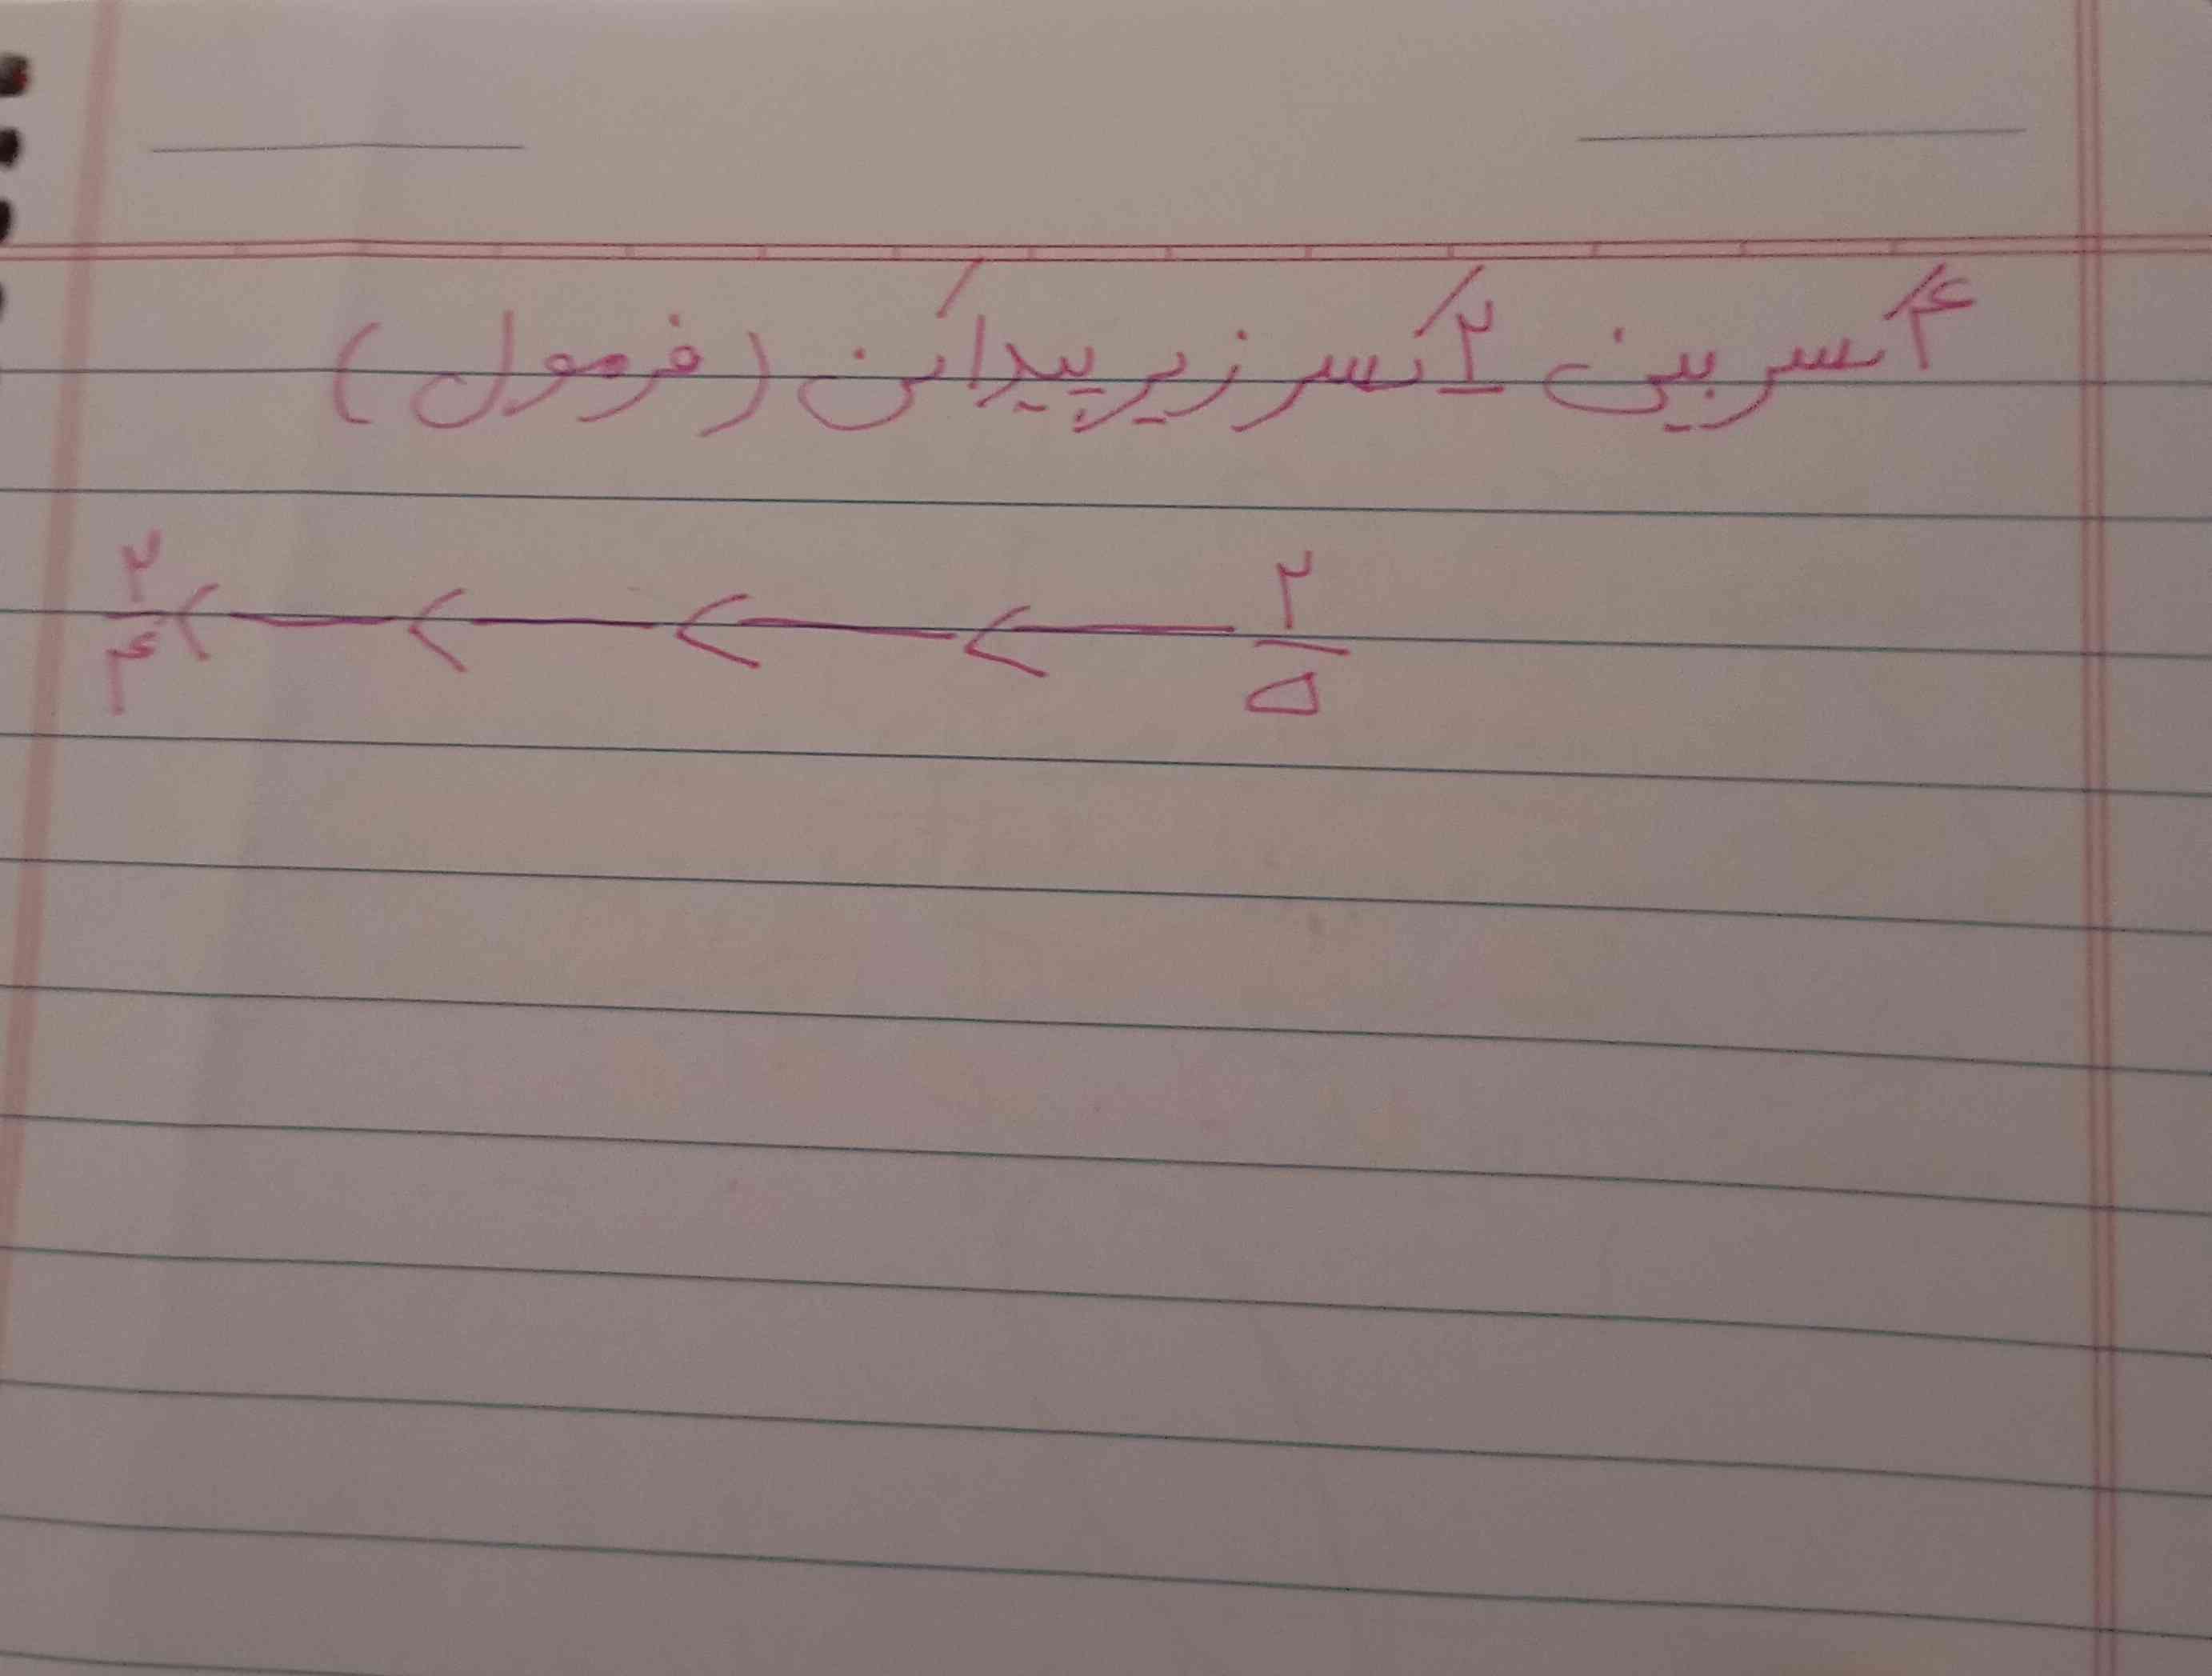 ۴ کسر بین ۲ کسر زیر پیدا کن (فرمول)
۲/۵ — < — < — < — < ۲/۴